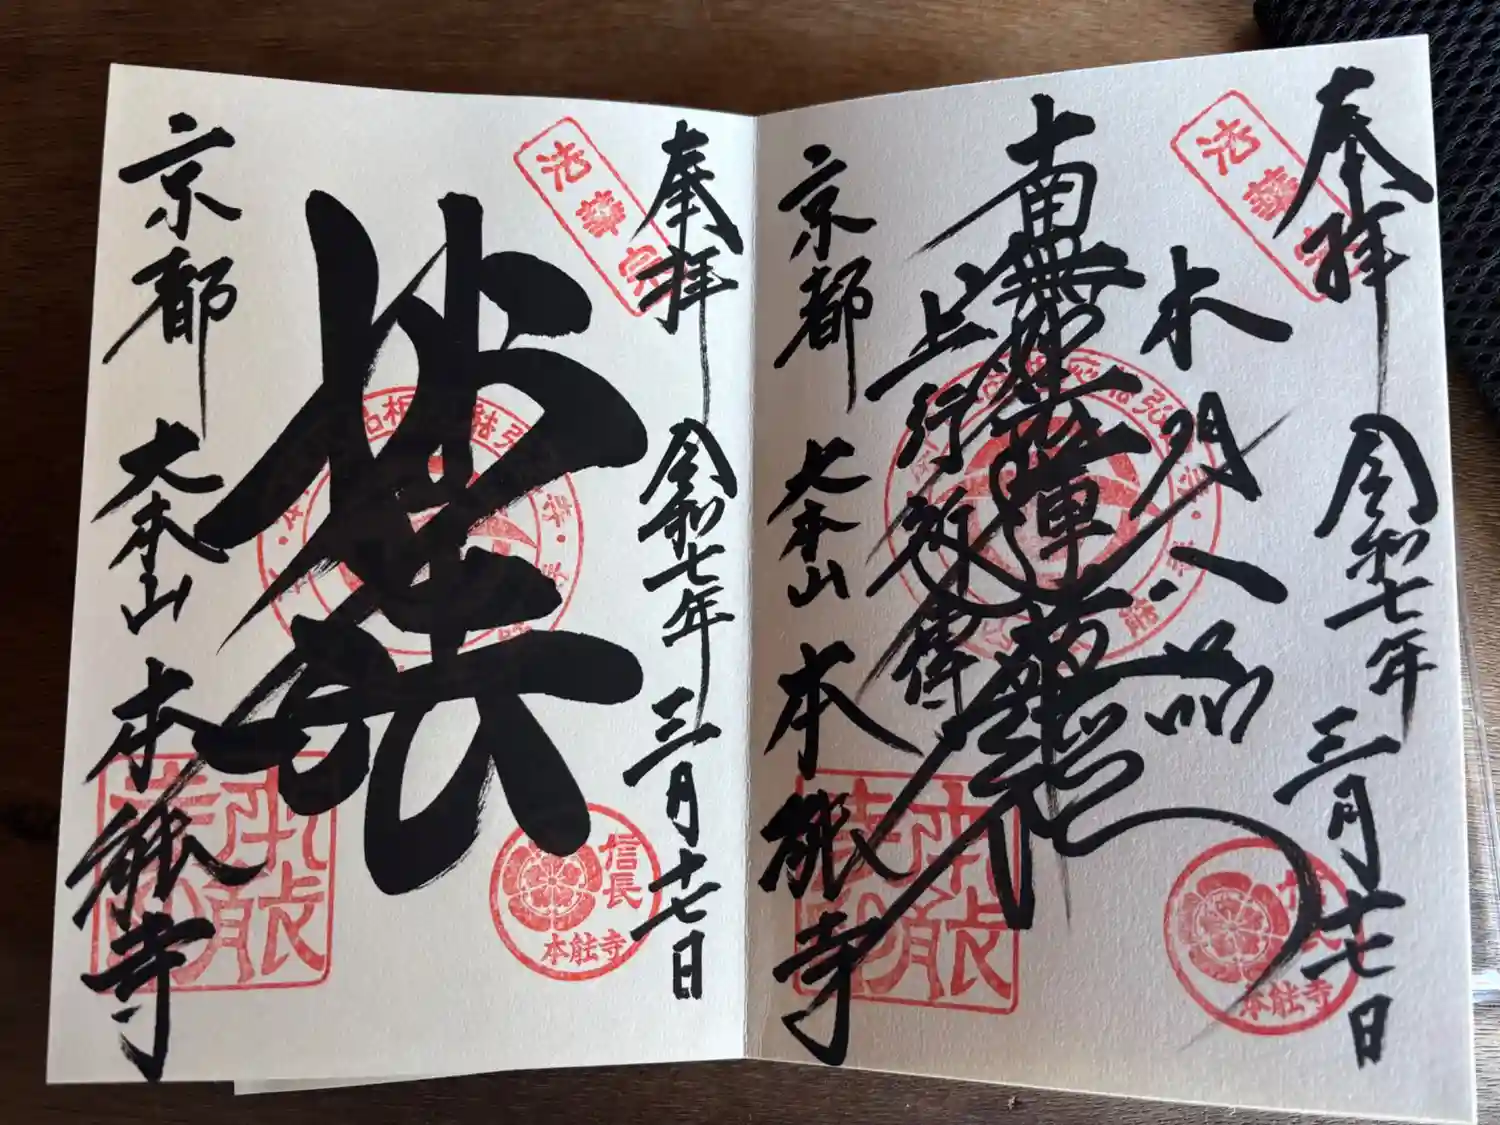 奉拝
令和七年三月十七日
本門八品
南無妙法蓮華経
上行所伝
京都
大本山
本能寺
法華宗
本能寺
奉拝
令和七年三月十七日
妙法
京都
大本山
本能寺
法華宗
信長
本能寺